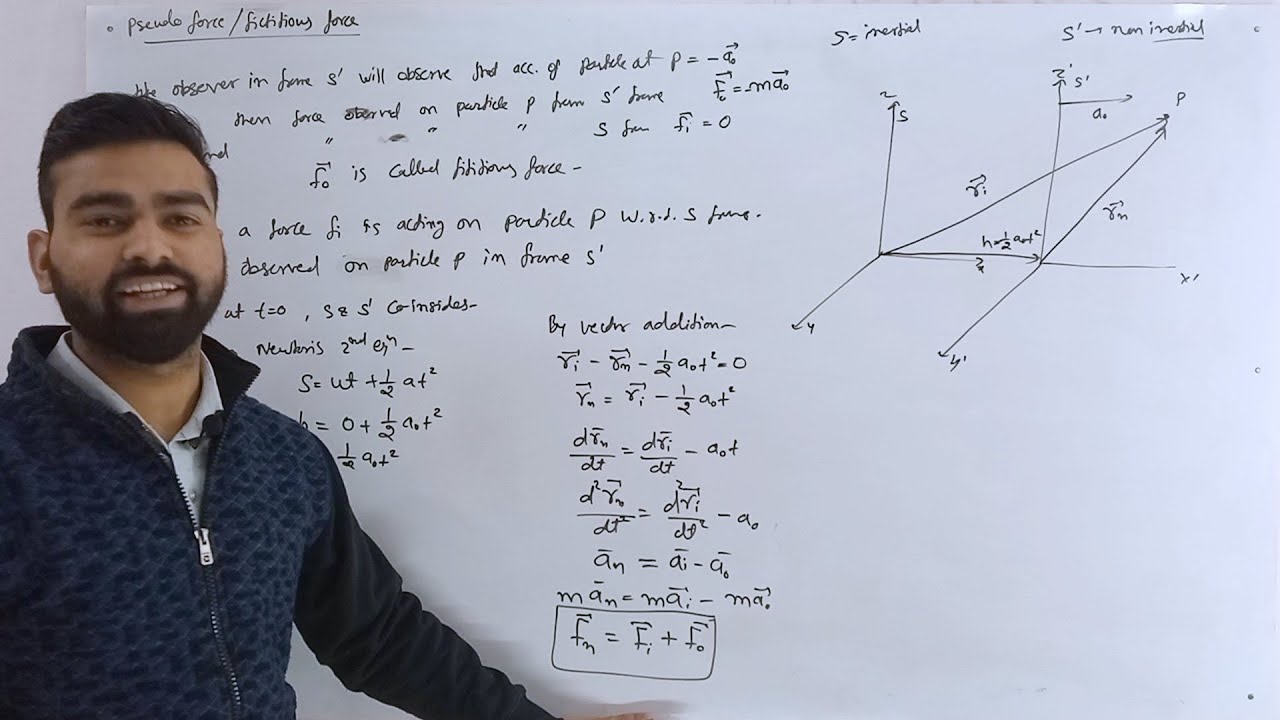 • pseudo force/fictitious force
the observer in frame s' will observe that acc. of particle at P = -a⃗₀
then force observed on particle p from s' frame f⃗₀ = -ma⃗₀
nd " " " S fram f⃗ᵢ = 0
f⃗₀ is called fititious force -
a force fi is acting on particle P w.r.t. S frame.
observed on particle p in frame s'
at t=0, s & s' coinsides -
Newton's 2nd eqⁿ -
S = ut + ½ at²
h = 0 + ½ a₀t²
½ a₀t²
By vector addition -
r⃗ᵢ - r⃗ₙ - ½ a₀t² = 0
r⃗ₙ = r⃗ᵢ - ½ a₀t²
dr⃗ₙ/dt = dr⃗ᵢ/dt - a₀t
d²r⃗ₙ/dt² = d²r⃗ᵢ/dt² - a₀
a̅ₙ = a̅ᵢ - a̅₀
ma̅ₙ = ma⃗ᵢ - ma⃗₀
f⃗ₙ = f⃗ᵢ + f⃗₀
S = inertial
S' → non inertial
z
S
y
z'
s'
a₀
P
r⃗ᵢ
r⃗ₙ
h=½a₀t²
x
x'
y'